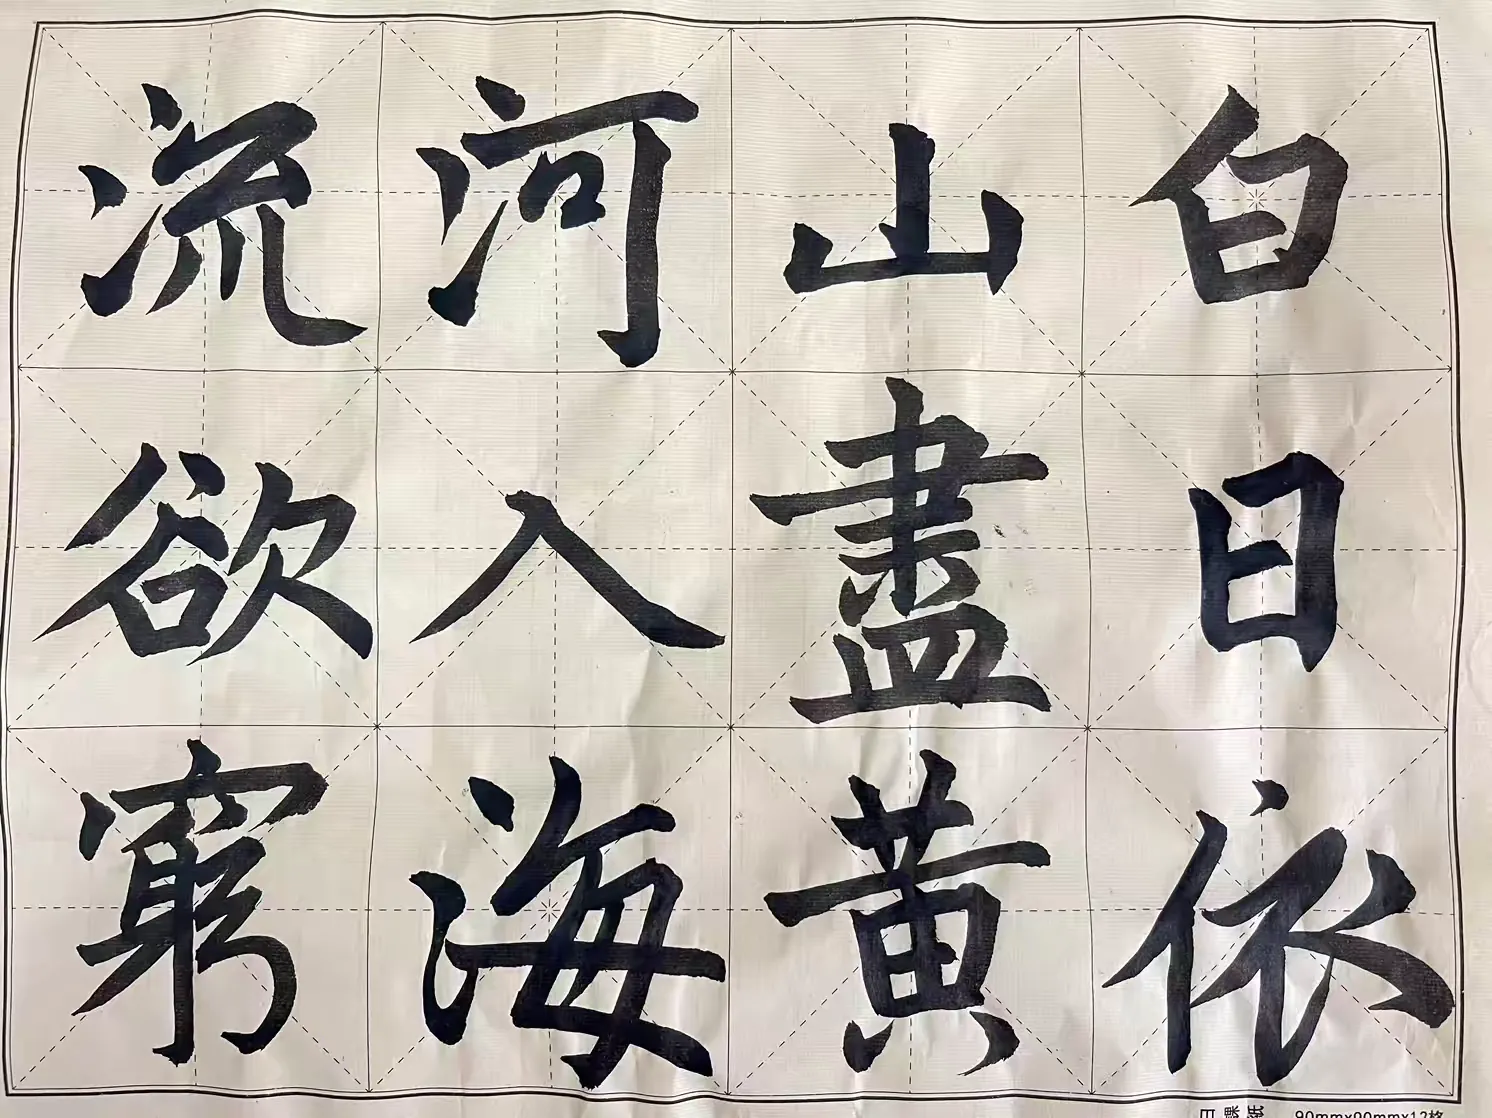 白日依
山盡黃
河入海
流欲窮
90mmx90mmx12格